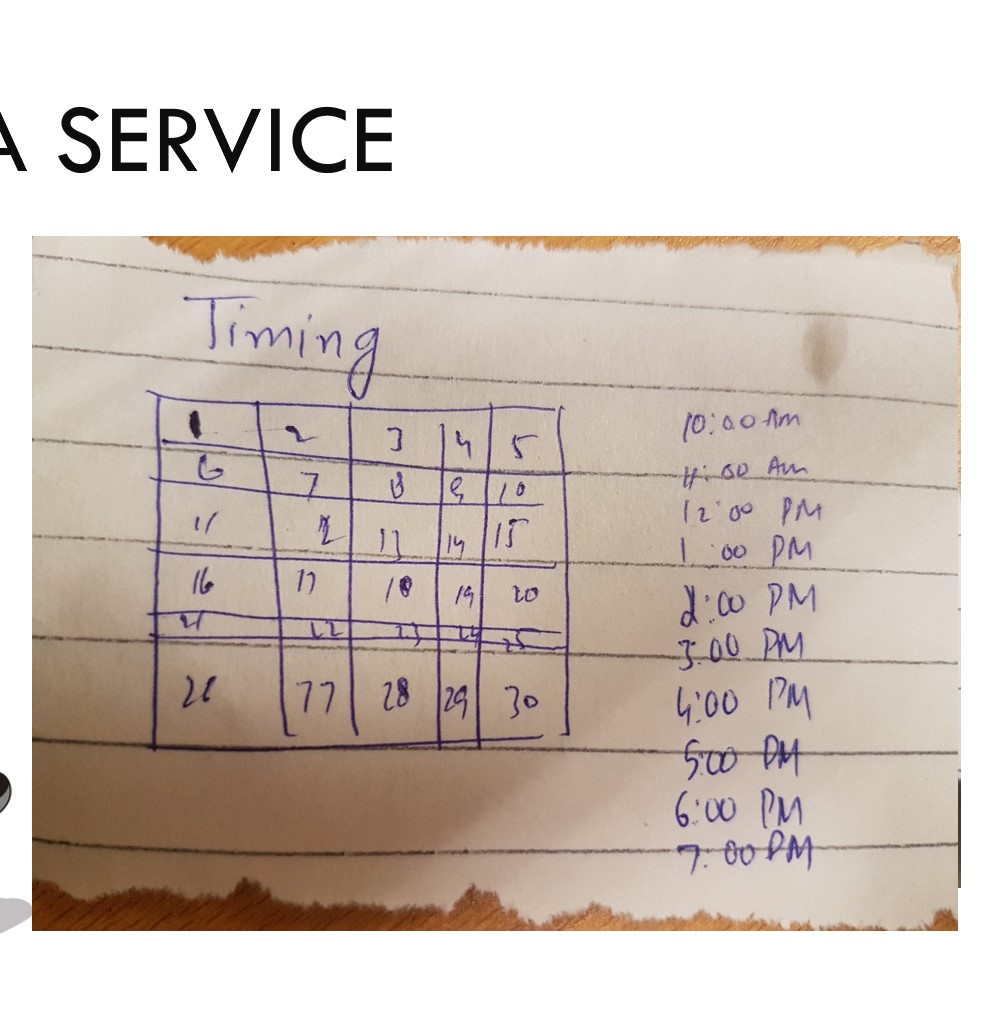 A SERVICE
Timing
1 2 3 4 5
6 7 8 9 10
11 12 13 14 15
16 17 18 19 20
21 22 23 24 25
26 77 28 29 30
10:00 Am
11:00 Am
12:00 PM
1:00 PM
2:00 PM
3:00 PM
4:00 PM
5:00 PM
6:00 PM
7:00 PM